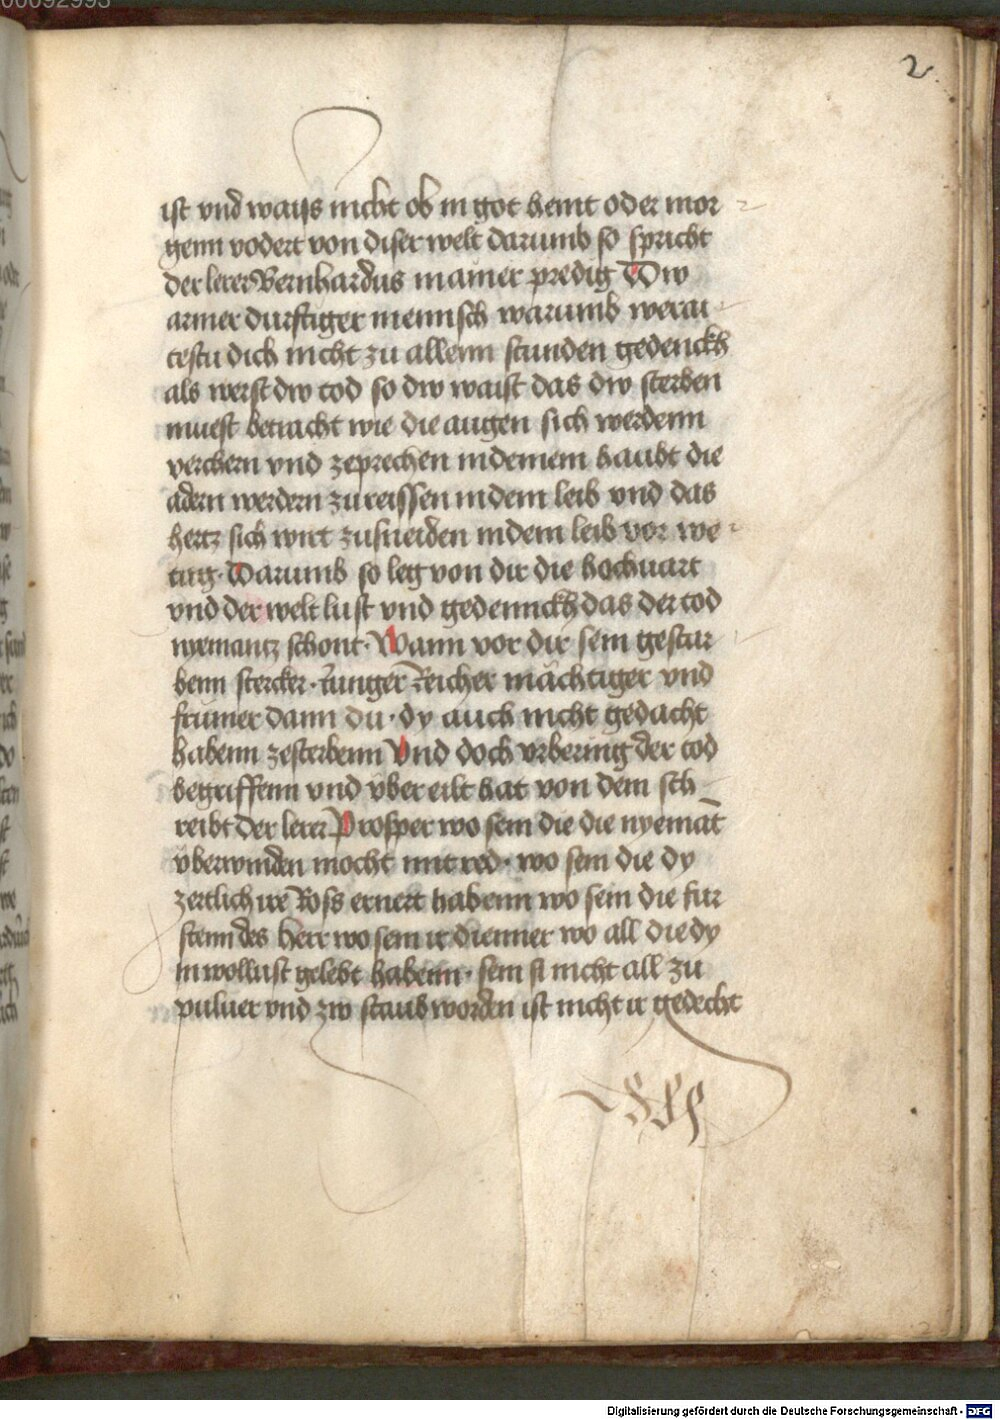 00092993
2
ist vnd wayss nicht ob in got hemt oder mor
genn vodert von diser welt darumb so spricht
der lerer Bernhardus in ainer predig Dw
armer durfftiger mennsch warumb werai
testu dich nicht zu allenn stunden gedenckh
als werst dw tod so dw waist das dw sterben
muest betracht wie die augen sich werdenn
verchern vnd zeprechen in deinem haubt die
adern werdern zu reissen in dem leib vnd das
hertz sich wirt zusneiden in dem leib vor we
tag. Darumb so leg von dir die hochuart
vnd der welt lust vnd gedennckh das der tod
nyemantz schont. Wann vor dir sein gestar
benn stercker. iunger Reicher mächtiger vnd
frumer dann du. dy auch nicht gedacht
habenn zesterbenn Vnd doch vrbering der tod
begriffenn vnd vber eilt hat von dem sch
reibt der lerer Prosper wo sein die die nyemāt
vberwinden mocht mit red. wo sein die dy
zertlich ire Ross ernert habenn wo sein die fur
stenn des Herr wo sein ir dienner wo all die dy
in wollust gelebt habenn. sein si nicht all zu
puluer vnd zw staub worden ist nicht ir gedecht
Digitalisierung gefördert durch die Deutsche Forschungsgemeinschaft - DFG